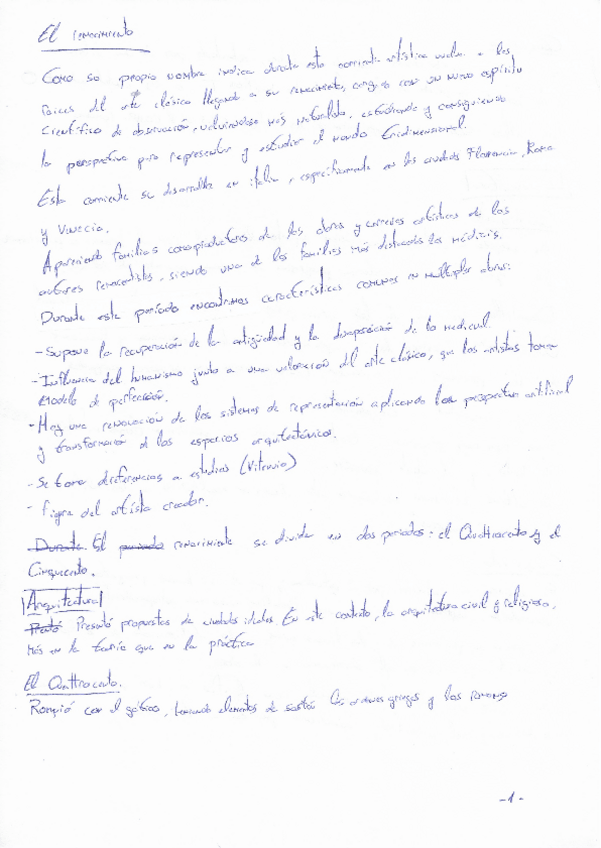 El renacimiento
Como so propio nombre indica durante esta corriente artística vuelve a las
raices del arte clásico llegando a su renacimiento, con un nuevo espíritu
científico de observación, volviendose más naturalista, estudiando y consiguiendo
la perspectiva para representar y estudiar el mundo tridimensional.
Esta corriente se desarrolla en italia, específicamente en las ciudades Florencia, Roma
y Venecia.
Apareciendo familias como productores de las obras y carreras artísticas de los
autores renacentistas, siendo una de las familias más distocadas los médicis.
Durante este período encontramos características comunes en múltiples obras:
- Supone la recuperación de la antigüedad y la desaparición de lo medieval.
- Influencia del humanismo junto a una valoración del arte clásico, que los artistas toman
modelo de perfección.
- Hay una renovación de los sistemas de representación aplicando la perspectiva artificial
y transformación de los espacios arquitectónicos.
- Se toma de referencias a estudios (Vitruvio)
- figra del artísta creador.
Durante El periodo renacimiento se divide en dos periodos: el Quattrocento y el
Cinquecento.
Arquitectura
Presentó propuestas de ciudades ideales. En este contexto, la arquitectura civil y religiosa,
más en la teoría que en la práctica
El Quattrocento.
Rompió con el gótico, tomando elementos de sostén los ordenes griegos y los romanos
-1-